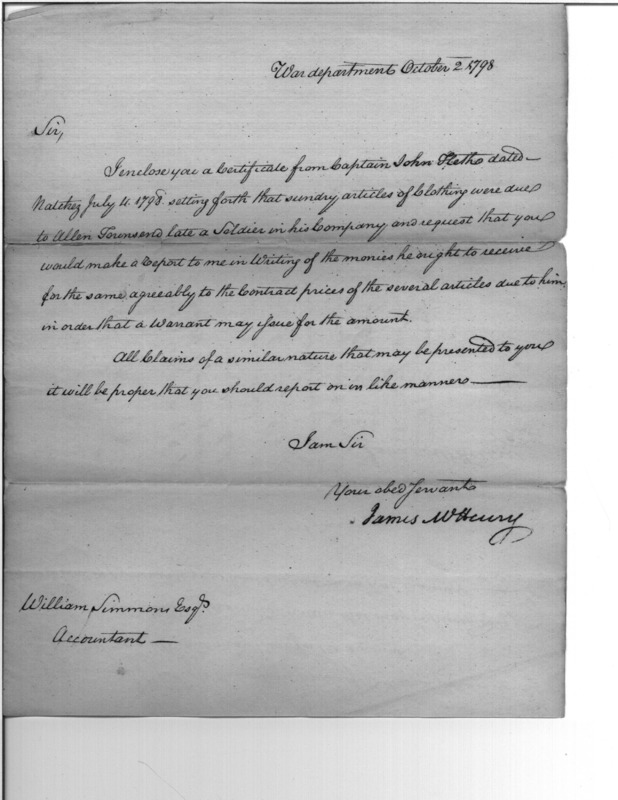 War department October 2 1798
Sir,
I enclose you a Certificate from Captain John dated
Natchez July 11. 1798. setting forth that sundry articles of Clothing were due
to Allen Townsend late a Soldier in his Company, and request that you
would make a report to me in Writing of the monies he ought to receive
for the same, agreeably to the Contract prices of the several articles due to him,
in order that a Warrant may issue for the amount.
All Claims of a similar nature that may be presented to you
it will be proper that you should report on in like manner —
I am Sir
Your obed Servant
James McHenry
William Simmons Esqr.
Accountant —